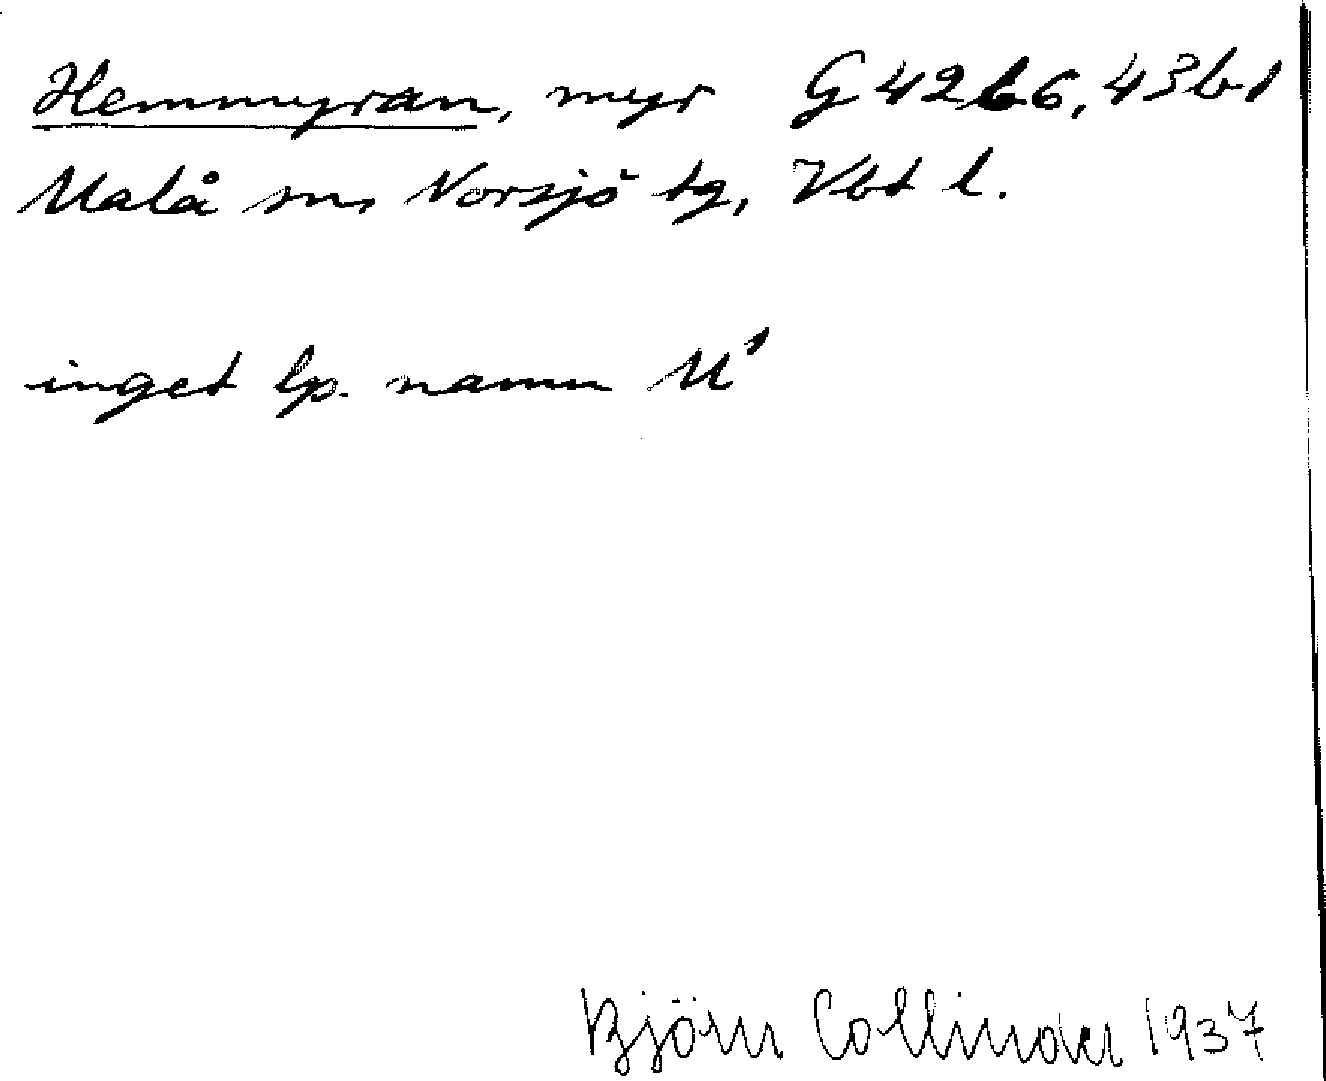 Hemmyran, myr G 42b6, 43b1
Malå sn, Norsjö tg, Vbt l.
inget lp. namn M¹
Björn Collinder 1937